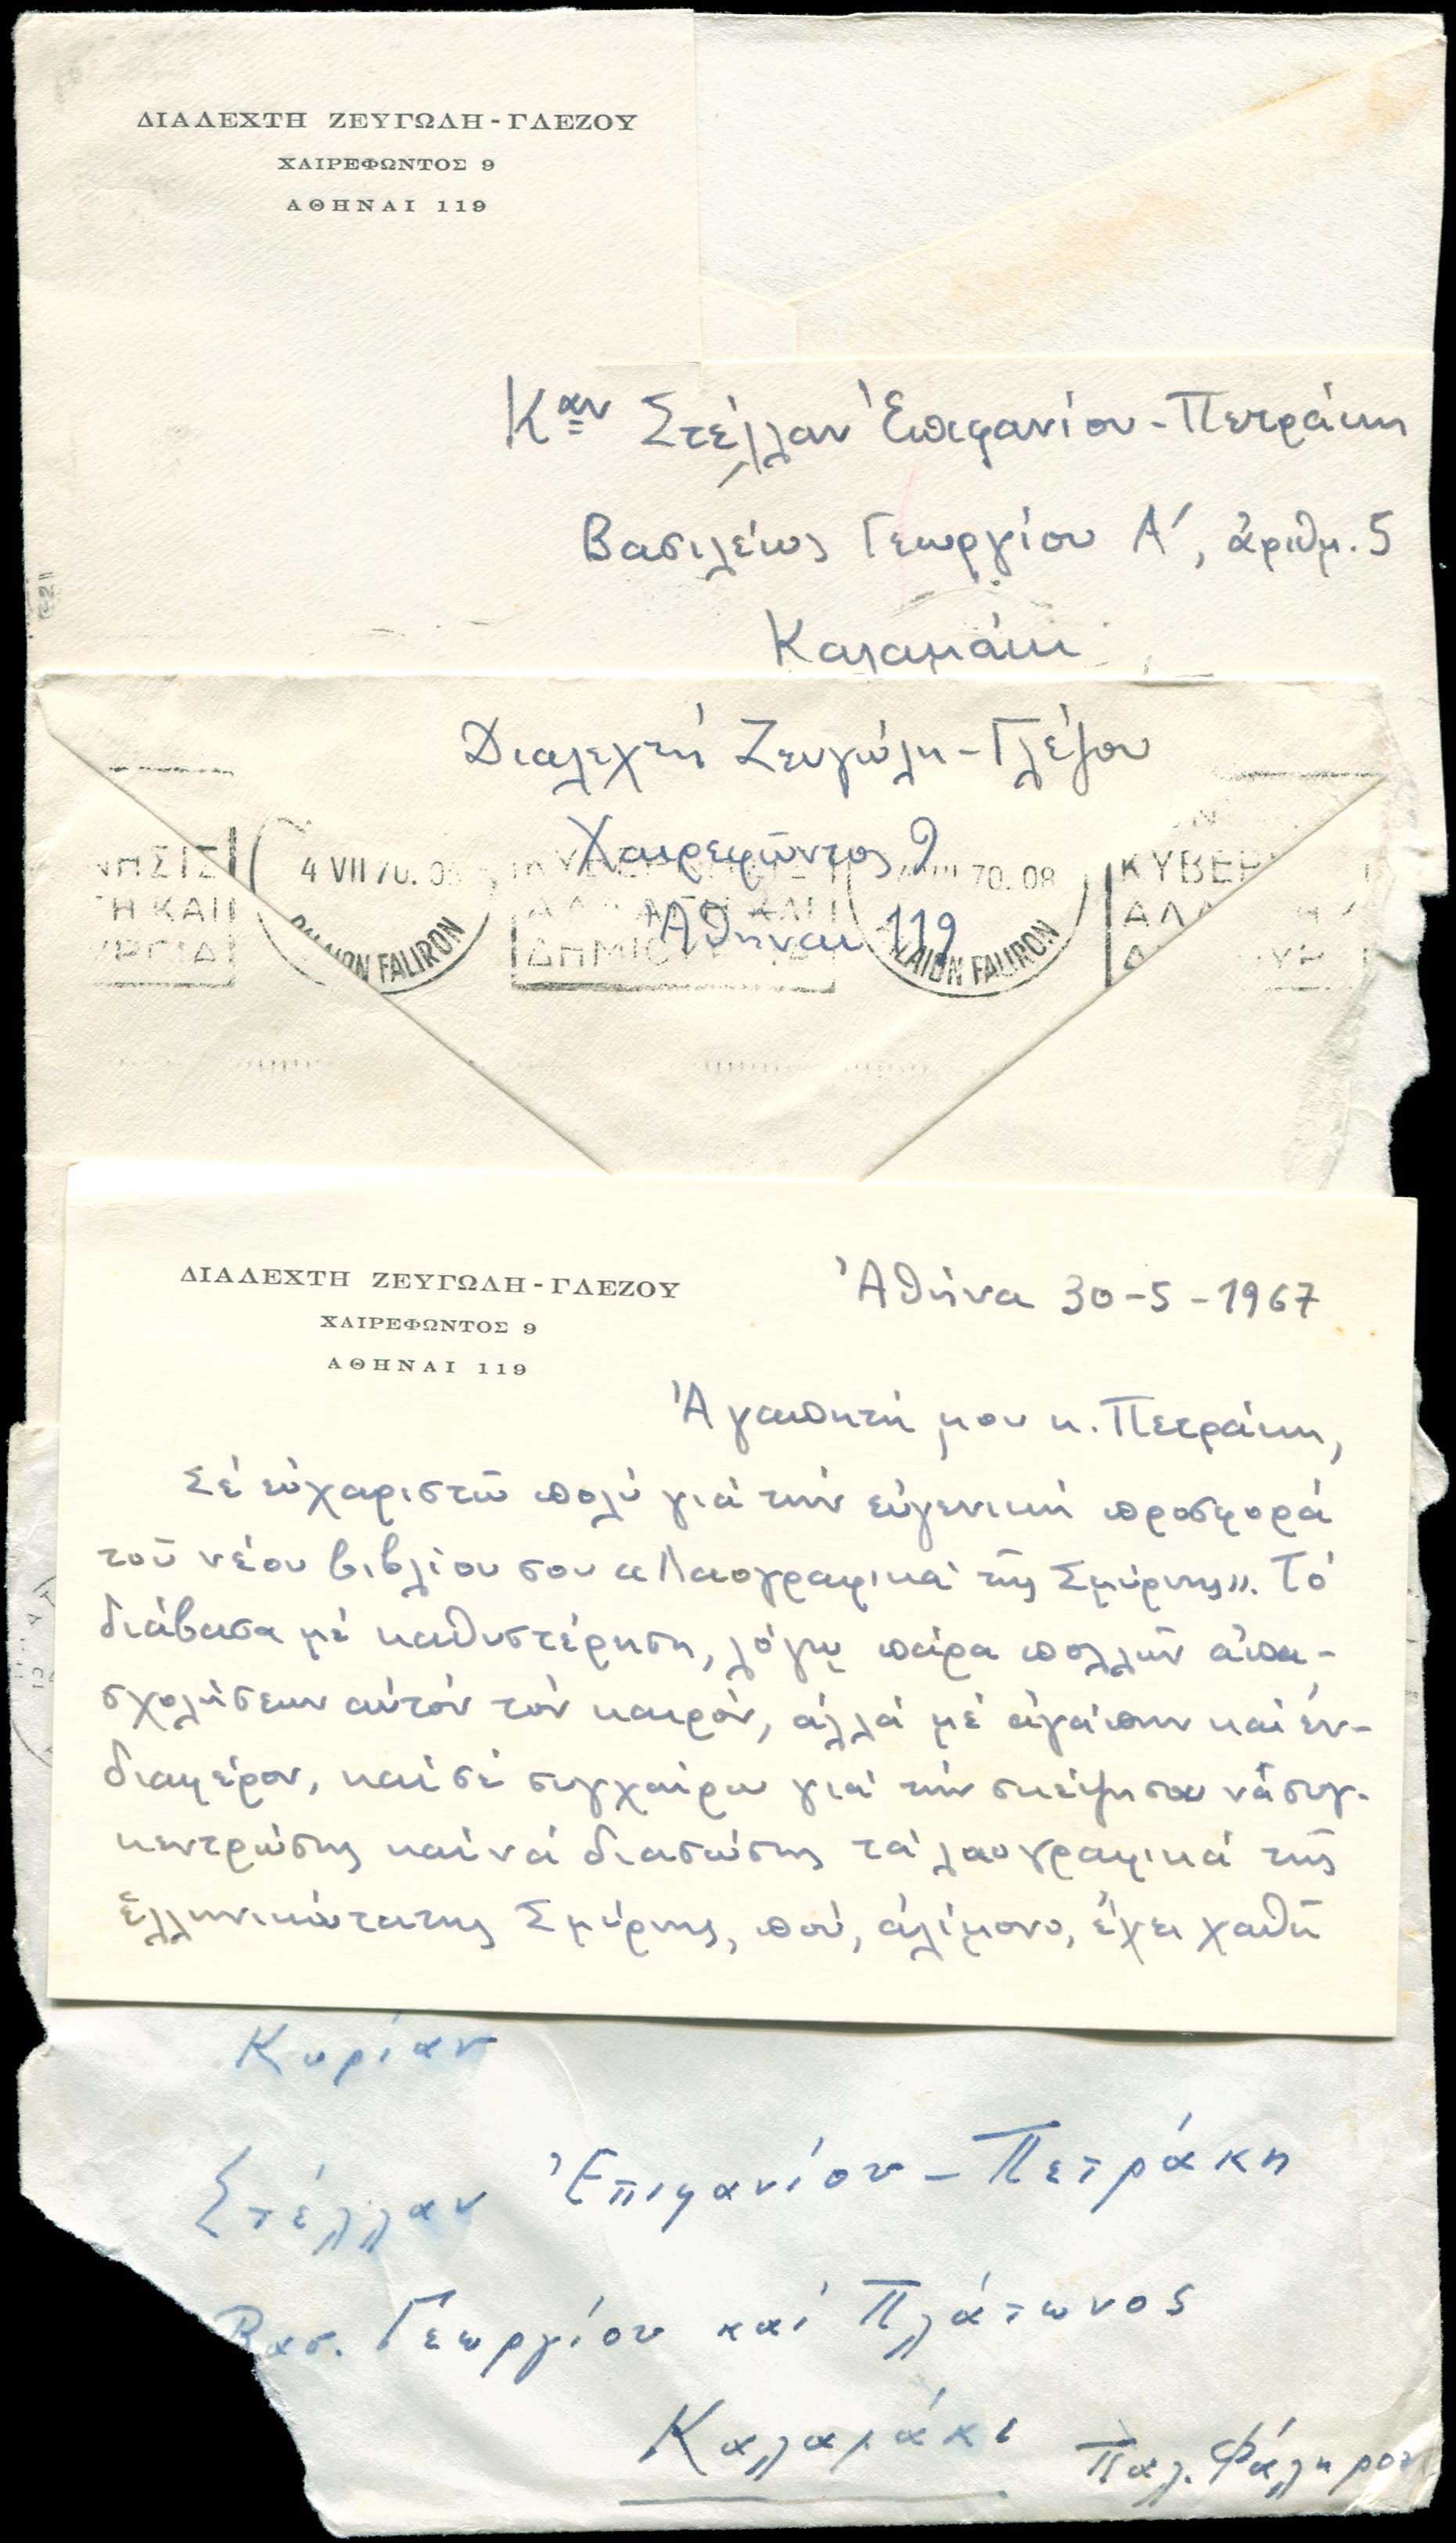 ΔΙΑΛΕΧΤΗ ΖΕΥΓΩΛΗ-ΓΛΕΖΟΥ
ΧΑΙΡΕΦΩΝΤΟΣ 9
ΑΘΗΝΑΙ 119
Καν Στέλλαν Ἐπιφανίου-Πετράκη
Βασιλέως Γεωργίου Α΄, ἀριθμ. 5
Καλαμάκι
Διαλεχτή Ζευγώλη-Γλέζου
Χαιρεφῶντος 9
Ἀθῆναι 119
ΝΗΣΙΣ
4 VII 70. 08
70. 08
ΚΥΒΕΡ
Η ΚΑΙ
ΔΗΜΙΟ
FALIRON
LAION FALIRON
ΔΙΑΛΕΧΤΗ ΖΕΥΓΩΛΗ-ΓΛΕΖΟΥ
ΧΑΙΡΕΦΩΝΤΟΣ 9
ΑΘΗΝΑΙ 119
Ἀθήνα 30-5-1967
Ἀγαπητή μου κ. Πετράκη,
Σέ εὐχαριστῶ πολύ γιά τήν εὐγενική προσφορά
τοῦ νέου βιβλίου σου «Λαογραφικά τῆς Σμύρνης». Τό
διάβασα μέ καθυστέρηση, λόγῳ πάρα πολλῶν ἀπα-
σχολήσεων αὐτόν τόν καιρόν, ἀλλά μέ ἀγάπην καί ἐν-
διαφέρον, καί σέ συγχαίρω γιά τήν σκέψη σου νά συγ-
κεντρώσης καί νά διασώσης τά λαογραφικά τῆς
ἑλληνικώτατης Σμύρνης, πού, ἀλίμονο, ἔχει χαθῆ
Κυρίαν
Στέλλαν Ἐπιφανίου-Πετράκη
Βασ. Γεωργίου καί Πλάτωνος
Καλαμάκι Παλ. Φάληρον